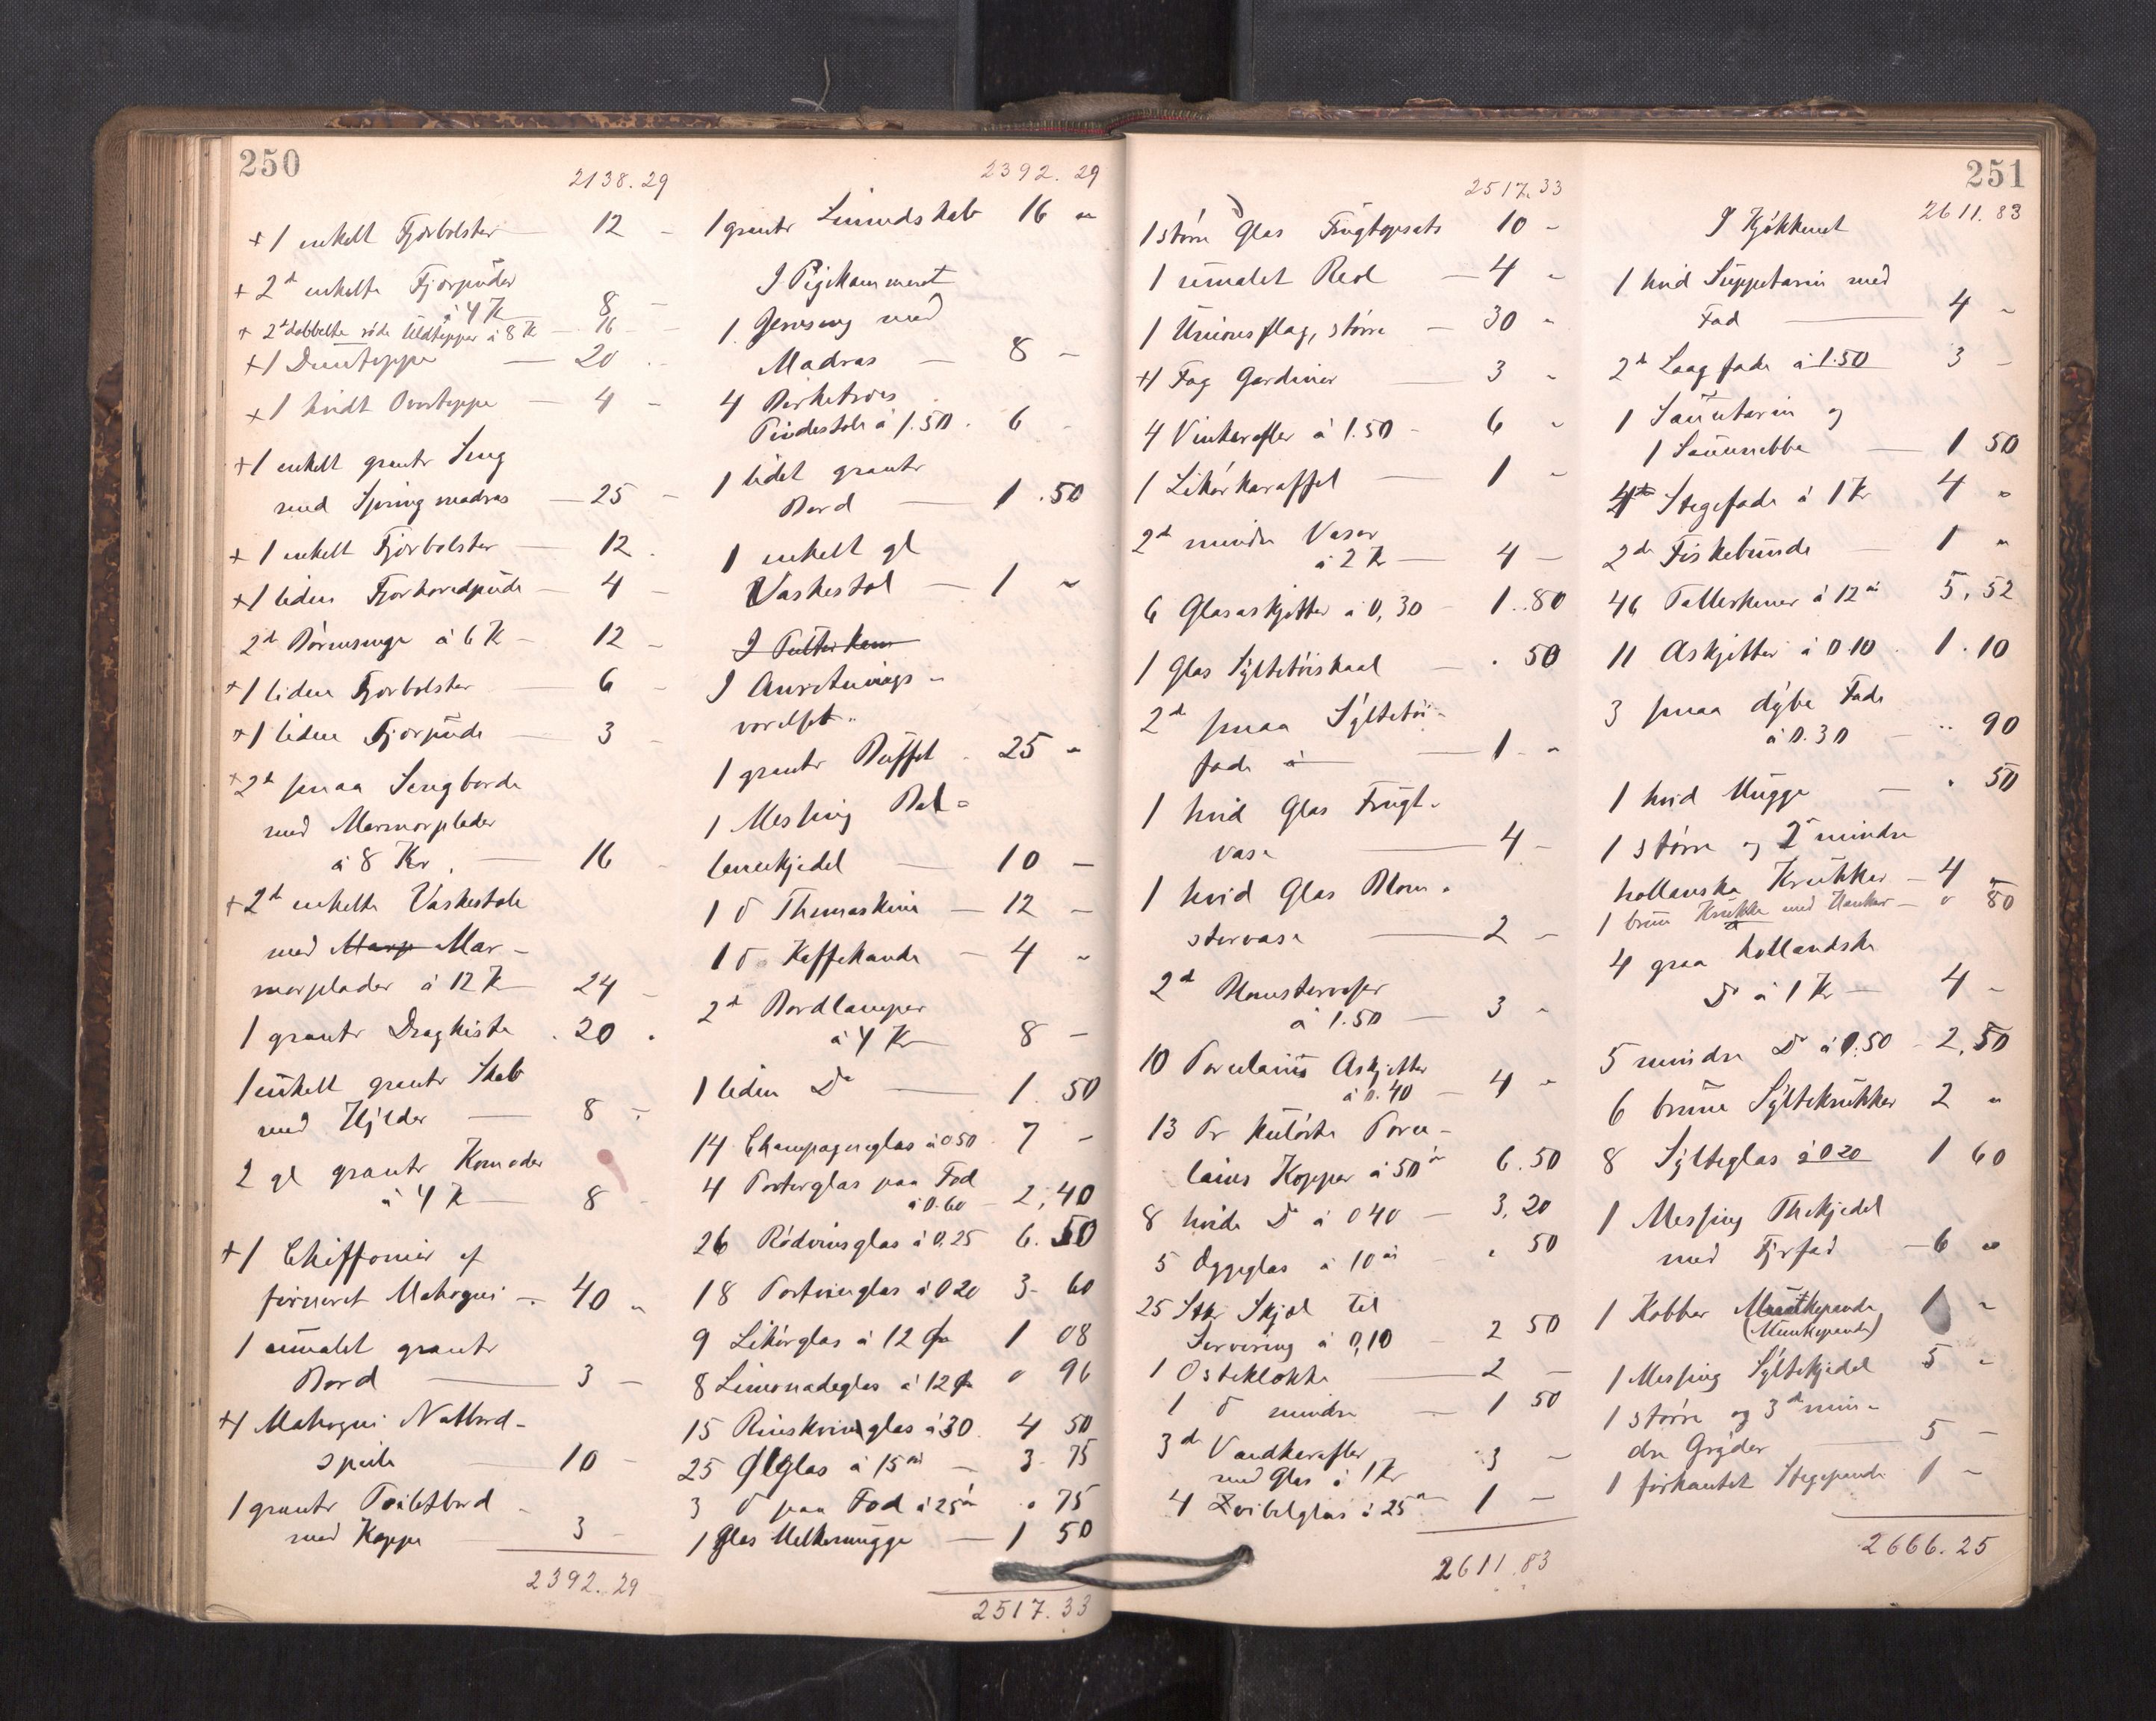 250
2138.29
+ 1 enkelt Fjørbolster — 12 -
+ 2d enkelte Fjørpüder
à 4 K 8 -
+ 2d dobbelte røde Uldtepper à 8 K — 16 -
+ 1 Duntæppe — 20 -
+ 1 hvidt Overteppe — 4 -
+ 1 enkelt grantr Seng
med Springmadras — 25 -
+ 1 enkelt Fjørbolster — 12 .
+ 1 liden Fjørhovedpüde — 4 -
2d Børnesenge à 6 K — 12 -
+ 1 liden Fjørbolster — 6 -
+ 1 liden Fjørpüde — 3 -
+ 2d smaa Sengborde
med Marmorplader
à 8 Kr. — 16 -
+ 2d enkelte Vaskestole
med Marp Mar-
morplader à 12 K — 24 -
1 grantr Dragkiste . 20 .
1 enkelt grantr Skab
med Hylder — 8 -
2 gl grantr Komoder
à 4 K — 8 -
+ 1 Chiffonier af
finneret Mahogni — 40 "
1 umalet grantr
Bord — 3 -
+ 1 Mahogni Natbord-
speile — 10 -
1 grantr Toiletbord -
med Kappe 3 -
2392.29
2392.29
1 grantr Linnedskab 16 "
I Pigekammeret
1 Jernseng med
Madras — 8 -
4 Birketræs
Pindestole à 1.50 . 6 -
1 lidet grantr
Bord — 1.50
1 enkelt gl
Vaskestol — 1 "
I Pulterkam
I Anretnings-
værelset.
1 grantr Büffet . 25 "
1 Messing Bal=
lonekjedel — 10 -
1 d Themaskine — 12 -
1 d Kaffekande — 4 "
2d Bordlamper
à 4 Kr 8 -
1 liden Do — 1. 50
14 Champagneglas à 0 50 7 -
4 Porterglas paa Fod
à 0.60 — 2,40
26 Rødvinsglas à 0.25 6.50
18 Portvinglas à 0 20 3- 60
9 Likørglas à 12 Øre 1 08
8 Limonadeglas à 12 Ø " 96
15 Rinskvinglas à 30. 4 50
25 Ølglas à 15 ør — 3- 75
3 d paa Fod à 25 ør " 75
1 Glas Melkemugge — 1 50
2517.33
251
2517.33
1 større Glas Frügtopsats 10 -
1 ümalet Reol — 4 "
1 Unionsflag, større — 30 "
+1 Fag Gardiner — 3 "
4 Vinkarafler à 1.50 - 6 "
1 Likørkaraffel — 1 "
2d mindre Vaser
à 2 K — 4 —
6 Glasaskjetter à 0,30 - 1..80
1 Glas Syltetøiskaal — . 50
2d smaa Syltetøi-
fade à — 1 - "
1 hvid Glas Frügt-
vase — 4 -
1 hvid Glas Blom-
stervase — 2 -
2d Blomstervaser
à 1.50 — 3 "
10 Porcelains Askjetter
à 0.40 — 4 "
13 Pr külørte Porce-
lains Kopper à 50 ør 6.50
8 hvide Do à 0 40 — 3,20
5 Æggeglas à 10 ør - " 50
25 Stkr Skjæl til
Servering à 0,10 — 2 50
1 Osteklokke — 2 —
1 d mindre — 1 50
3d Vandkarafler
med Glas à 1 Kr 3 -
4 Zvibelglas à 25 ør 1 —
2611.83
2611.83
I Kjøkkenet
1 hvid Süppeterin med
Fad — 4 -
2d Laagfade à 1.50 3 -
1 Saüseterin og
1 Saüsenebbe — 1 50
4 Stegefade à 1 Kr 4 "
2d Fiskebünde — 1 "
46 Tallerkener à 12 ør 5,52
11 Askjetter à 0.10 . 1.10
3 smaa dybe Fade
à 0.30 — " 90
1 hvid Mugge — " 50
1 større og 2 mindre
hollanske Krükker — 4 -
1 brün Krükke med Hanker — " 80
4 graa hollandske
Do à 1 Kr — 4 -
5 mindre Do à 0.50 - 2,50
6 brüne Syltekrükker 2 "
8 Sylteglas à 0 20 1 60
1 Messing Thekjedel
med Fyrfad — 6 "
1 Kobber Munkepande 1 "
(Munkepande)
1 Messing Syltekjedel 5 "
1 større og 3d min-
dre Gryder — 5 -
1 firkantet Stegepande 1 -
2666.25